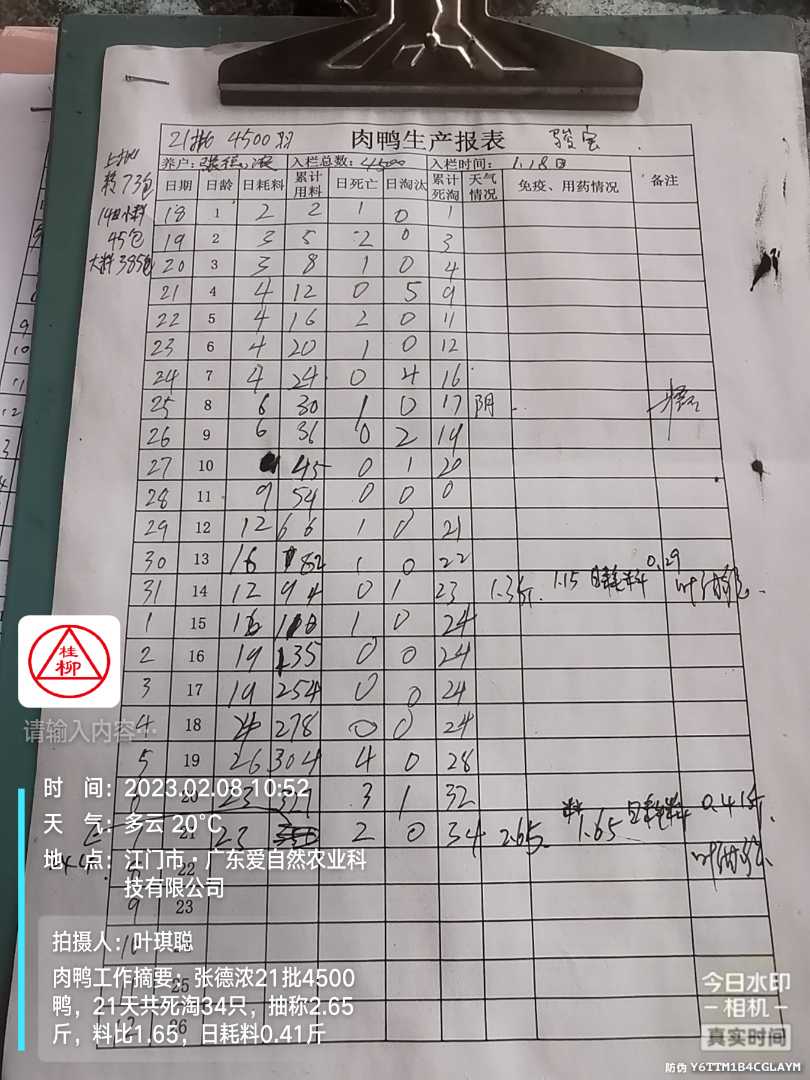 21批 4500羽 肉鸭生产报表
养户: 张德浓 入栏总数: 4500 入栏时间: 1.18日
日期 日龄 日耗料 累计用料 日死亡 日淘汰 累计死淘 天气情况 免疫、用药情况 备注
73包
45包
大料385包
18 1 2 2 1 0 1
19 2 3 5 2 0 3
20 3 3 8 1 0 4
21 4 4 12 0 5 9
22 5 4 16 2 0 11
23 6 4 20 1 0 12
24 7 4 24 0 4 16
25 8 6 30 1 0 17 阴
26 9 6 36 0 2 19
27 10 45 0 1 20
28 11 9 54 0 0 0
29 12 12 66 1 0 21
30 13 16 82 1 0 22
31 14 12 94 0 1 23 1.3斤 1.15 日耗料 0.29
1 15 16 110 1 0 24
2 16 19 135 0 0 24
3 17 19 254 0 0 24
4 18 24 278 0 0 24
5 19 26 304 4 0 28
20 23 3 1 32
21 23 2 0 34 2.65 1.65 日耗料 0.41斤
22
9 23
10
25
26
桂柳
请输入内容…
时 间: 2023.02.08 10:52
天 气: 多云 20℃
地 点: 江门市·广东爱自然农业科
技有限公司
拍摄人: 叶琪聪
肉鸭工作摘要: 张德浓21批4500
鸭，21天共死淘34只，抽称2.65
斤，料比1.65，日耗料0.41斤
今日水印
相机
真实时间
防伪 Y6TTM1B4CGLAYM